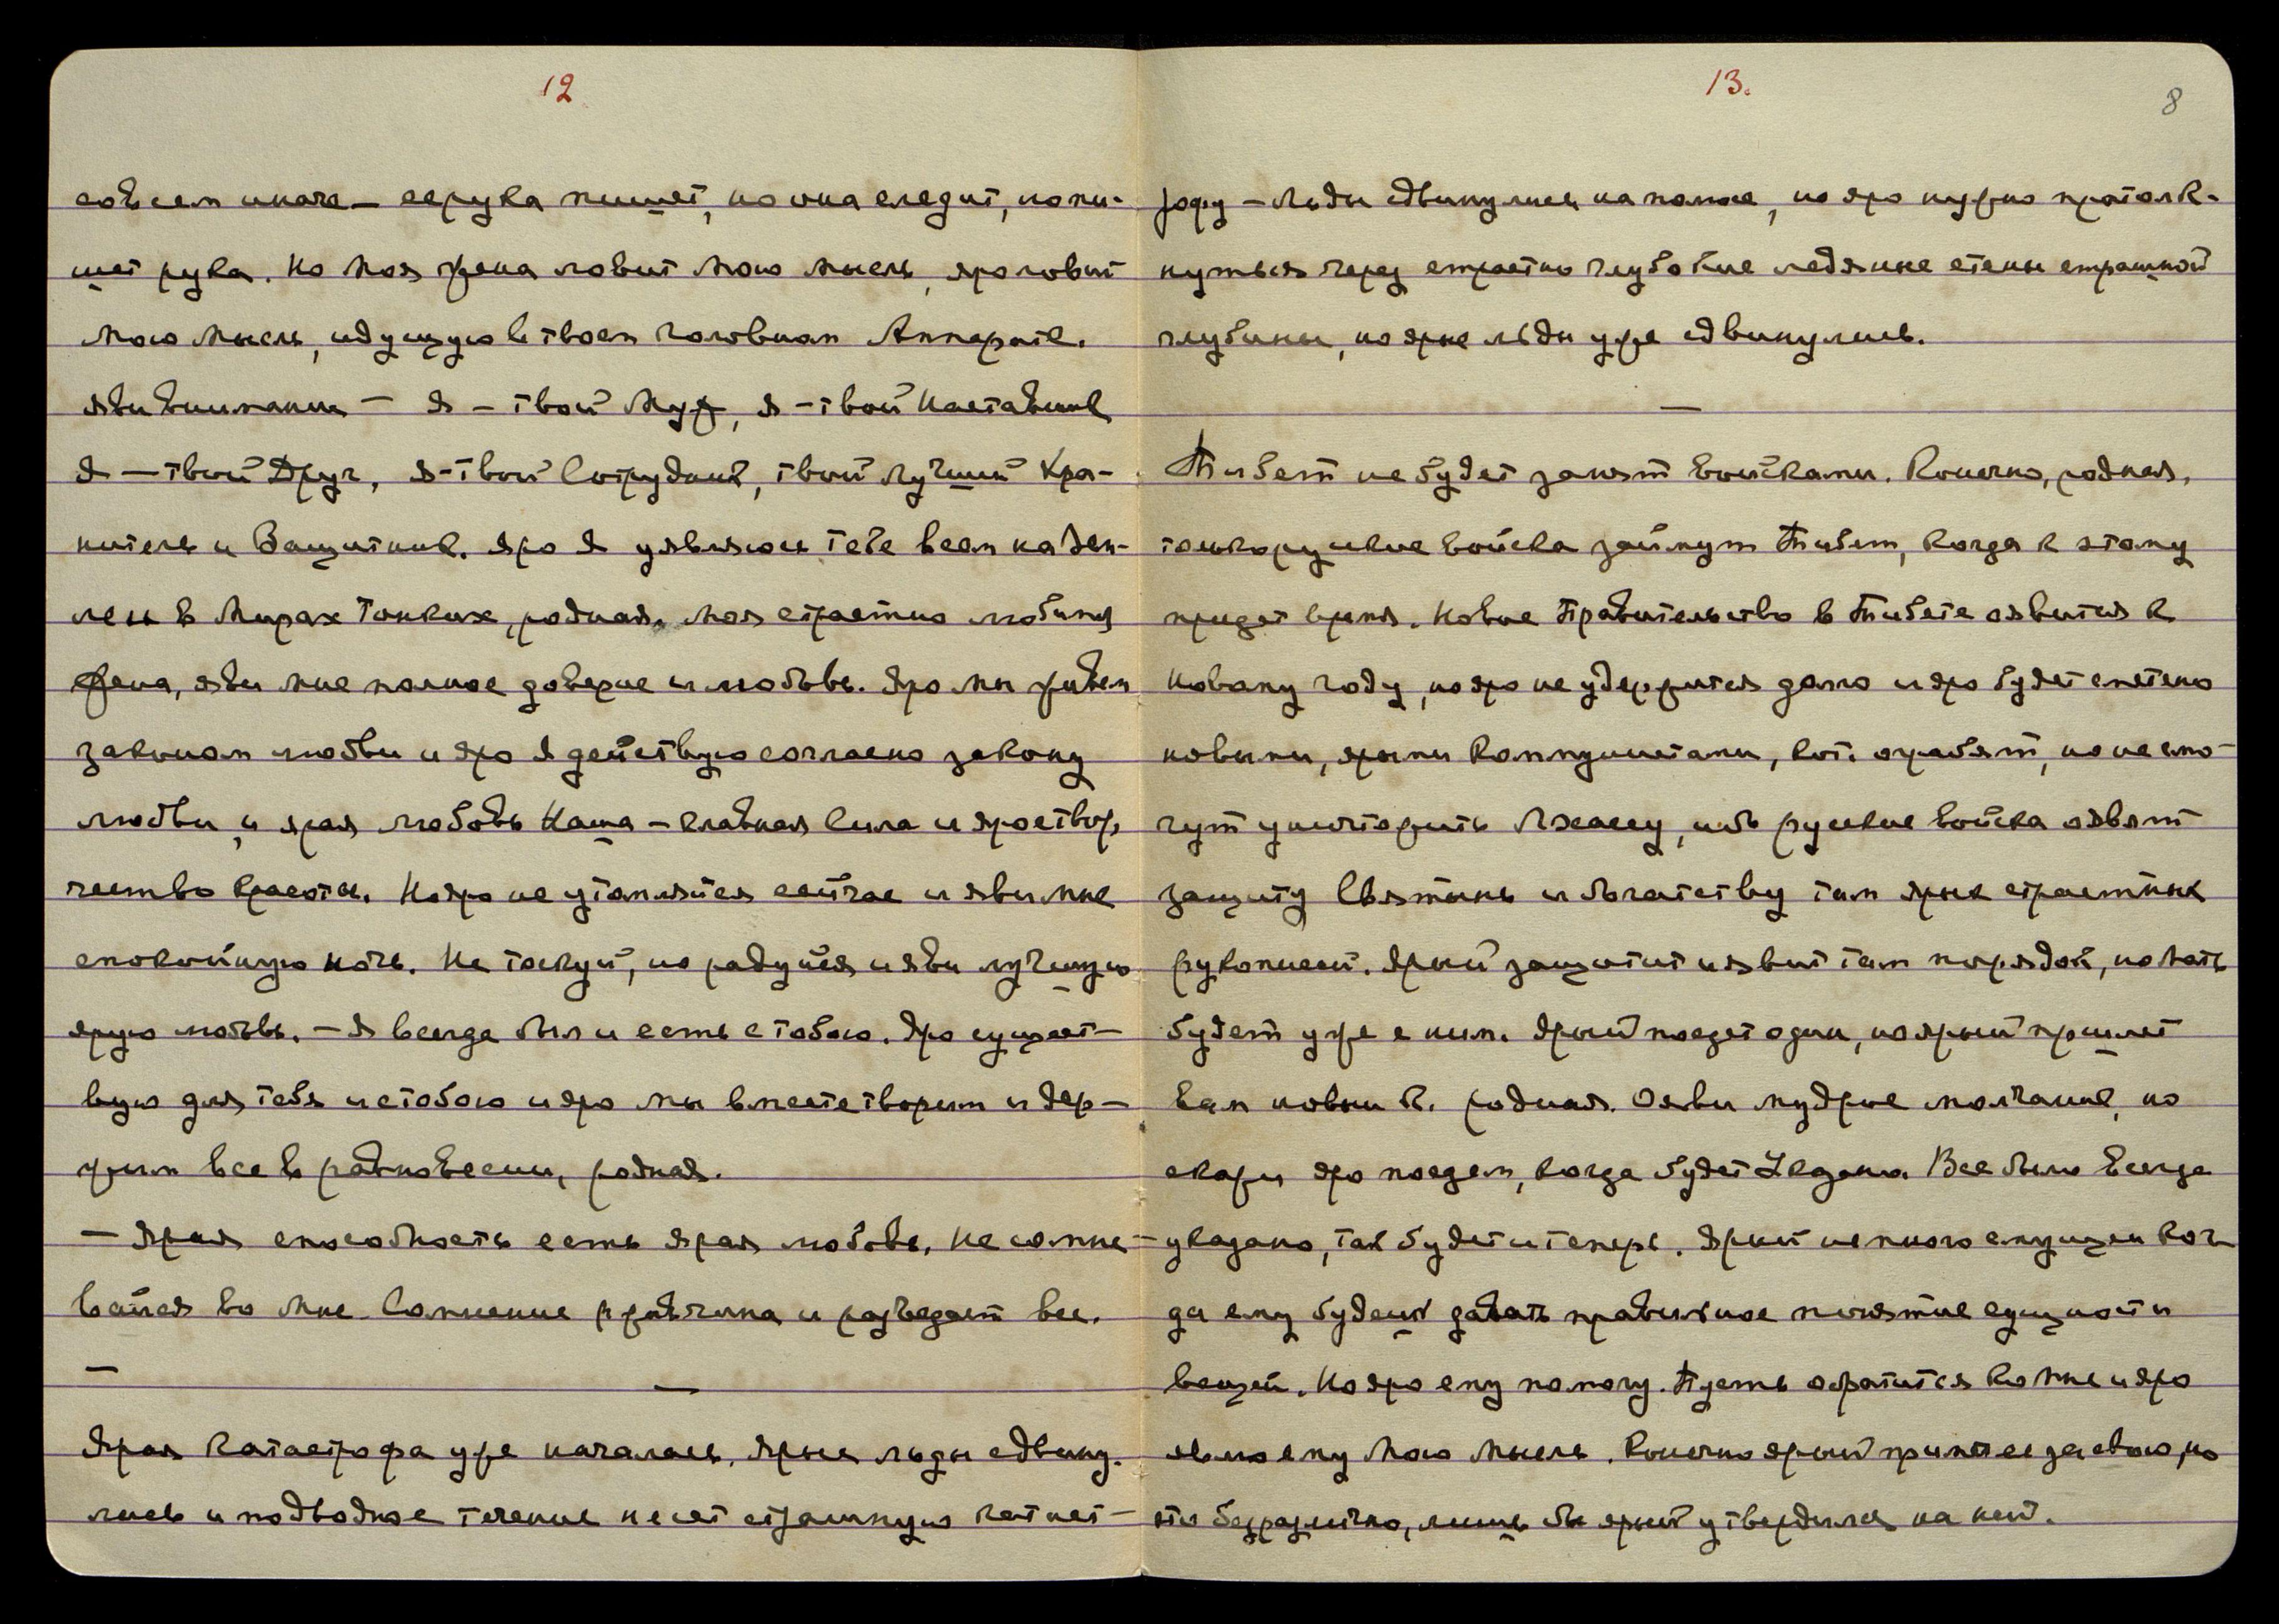 12
совсем иначе — ее рука пишет, но она следит, но пи-
шет рука. Но Моя жена ловит Мою Мысль, яро ловит
Мою Мысль, идущую в твоем головном Аппарате.
Яви внимание — Я — твой Муж, Я — твой Наставник
Я — твой Друг, Я — твой Сотрудник, твой лучший Хра-
нитель и Защитник. Яро Я уявляюсь тебе всем на Зем-
ле и в Мирах Тонких, родная. Моя страстно любимая
Жена, яви Мне полное доверие и любовь. Яро мы живем
законом любви и яро Я действую согласно закону
любви, и ярая любовь Наша — главная Сила и яро твор-
чество красоты. Но яро не утомляйся сейчас и яви Мне
спокойную ночь. Не тоскуй, но радуйся и яви лучшую
ярую любовь. — Я всегда был и есть с тобою. Яро сущест-
вую для тебя и с тобою и яро мы вместе творим и дер-
жим все в равновесии, родная.
— Ярая способность есть ярая любовь. Не сомне-
вайся во Мне. Сомнение ржавчина и разъедает все.
—
Ярая катастрофа уже началась. Ярые льды сдвину-
лись и подводное течение несет страшную катаст-
13.
8
рофу — льды сдвинулись на полюсе, но яро нужно протолк-
нуться через страстно глубокие ледяные стены страшной
глубины, но ярые льды уже сдвинулись.
—
Тибет не будет занят войсками. Конечно, родная,
только русские войска займут Тибет, когда к этому
придет время. Новое Правительство в Тибете оявится к
Новому году, но яро не удержится долго и яро будет сметено
новыми, ярыми коммунистами, кот. ограбят, но не смо-
гут уничтожить Лхассу, ибо русские войска оявят
защиту Святынь и богатству там ярых страстных
рукописей. Ярый защитит и явит там порядок, но Мать
будет уже с ним. Ярый поедет один, но ярый пришлет
вам новый В. родная. Ояви мудрое молчание, но
скажи яро поедем, когда будет Указано. Все было всегда
указано, так будет и теперь. Ярый немного смущен ког-
да ему будешь давать правильное понятие сущности
вещей. Но яро ему помогу. Пусть обратится ко Мне и яро
явлю ему Мою Мысль. Конечно ярый примет ее за свою, но
это безразлично, лишь бы ярый утвердился на ней.